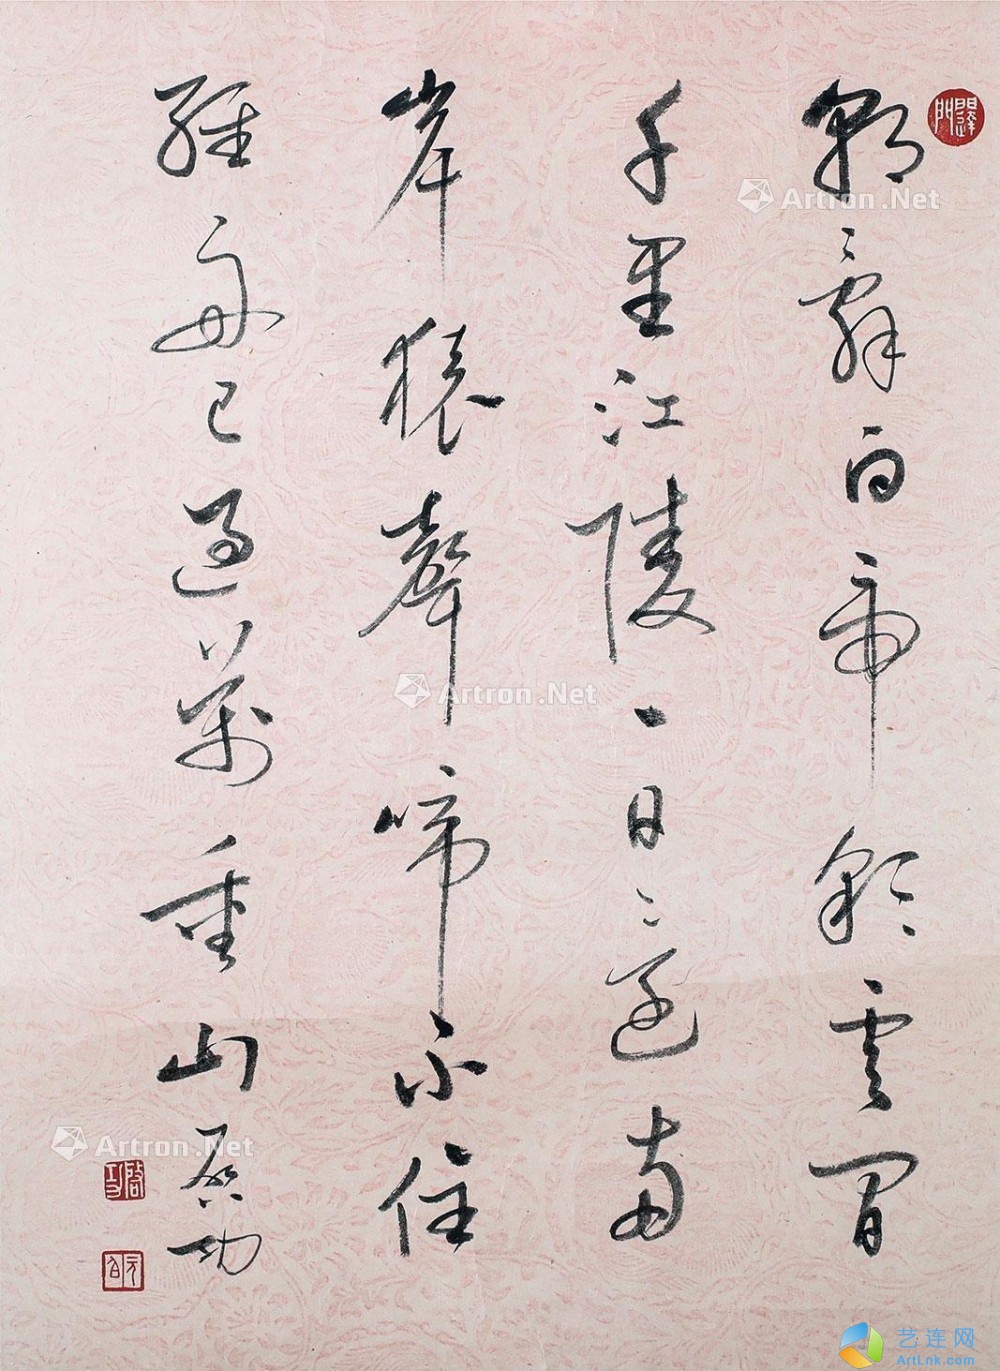 朝辭白帝彩雲間
千里江陵一日還兩
岸猿聲啼不住
輕舟已過萬重山 啟功
啟功
元白
Artron.Net
Artron.Net
Artron.Net
艺连网
ArtLnk.com